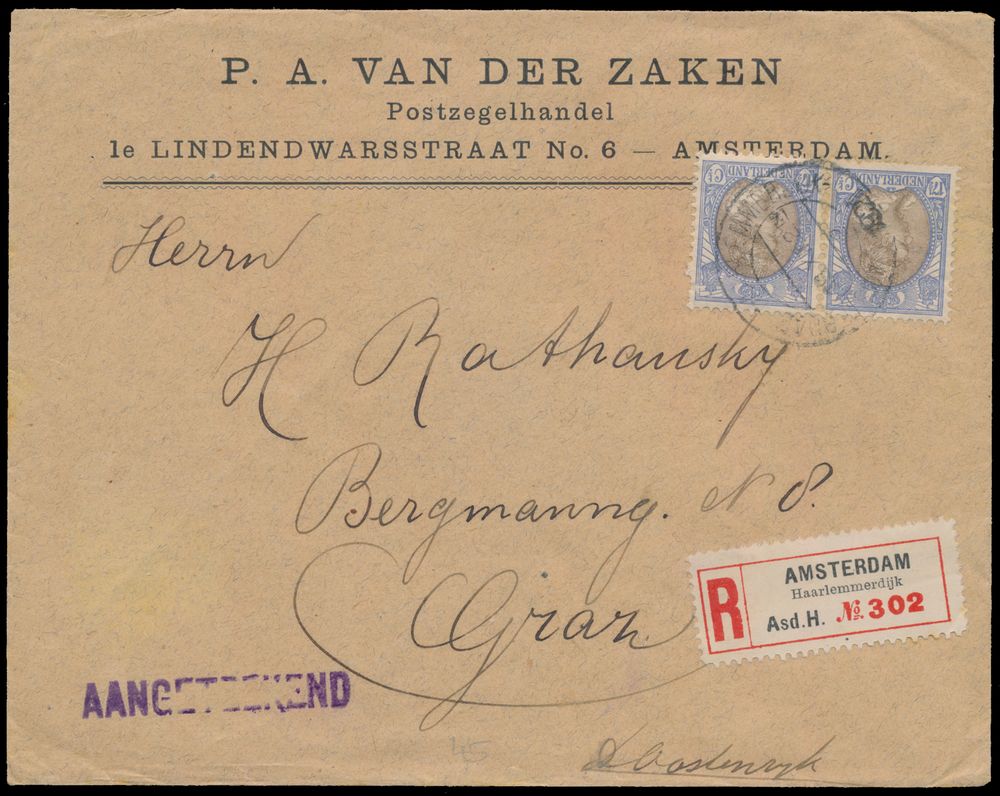 P. A. VAN DER ZAKEN
Postzegelhandel
1e LINDENDWARSSTRAAT No. 6 — AMSTERDAM.
NEDERLAND
NEDERLAND
Herrn
H Rathansky
Bergmanng. N 8.
Graz
R
AMSTERDAM
Haarlemmerdijk
Asd.H. № 302
AANGETEEKEND
45
Oostenryk